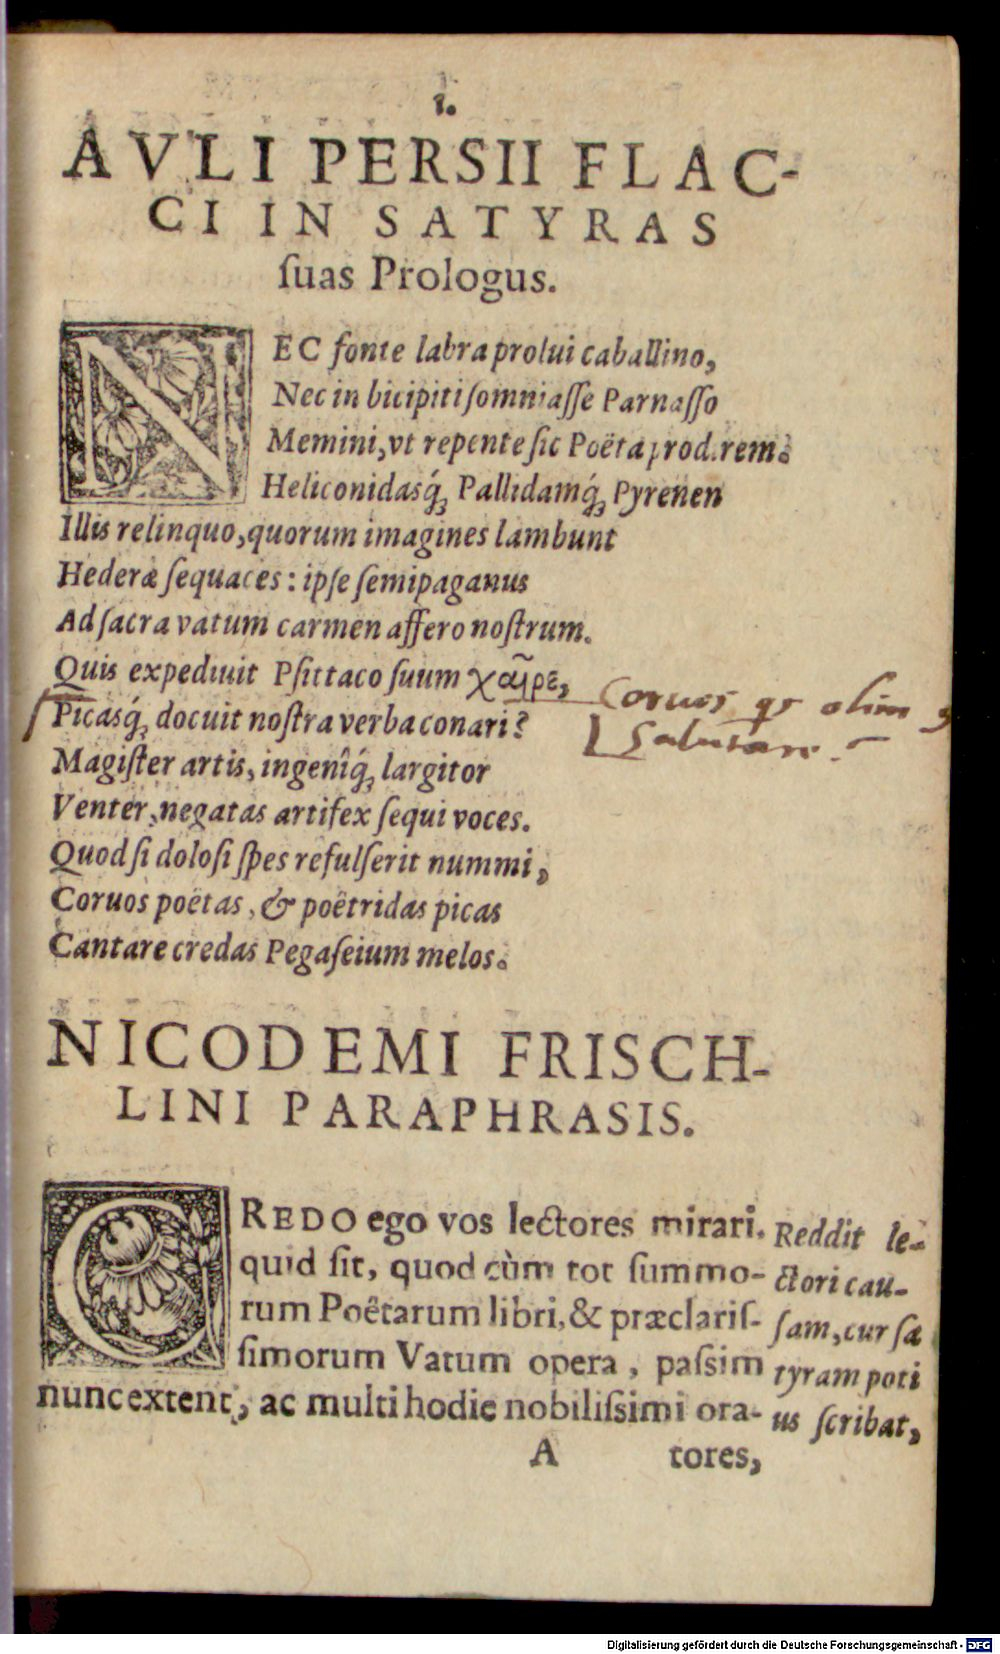 1.
AVLI PERSII FLAC-
CI IN SATYRAS
ſuas Prologus.
NEC fonte labra prolui caballino,
Nec in bicipiti ſomniaſſe Parnaſſo
Memini, vt repente ſic Poëta prodirem.
Heliconidasq́;, Pallidamq́; Pyrenen
Illis relinquo, quorum imagines lambunt
Hederæ ſequaces: ipſe ſemipaganus
Ad ſacra vatum carmen affero noſtrum.
Quis expediuit Pſittaco ſuum χαῖρε,
Picasq́; docuit noſtra verba conari?
Coruos qs olim
Salutare.
Magiſter artis, ingenîq́; largitor
Venter, negatas artifex ſequi voces.
Quod ſi doloſi ſpes refulſerit nummi,
Coruos poëtas, & poëtridas picas
Cantare credas Pegaſeium melos.
NICODEMI FRISCH-
LINI PARAPHRASIS.
CREDO ego vos lectores mirari,
quid ſit, quod cùm tot ſummo-
rum Poëtarum libri, & præclariſ-
ſimorum Vatum opera, paſsim
nunc extent, ac multi hodie nobiliſsimi ora-
Reddit le-
ctori cau-
ſam, cur ſa
tyram poti
us ſcribat,
A tores,
Digitalisierung gefördert durch die Deutsche Forschungsgemeinschaft - DFG